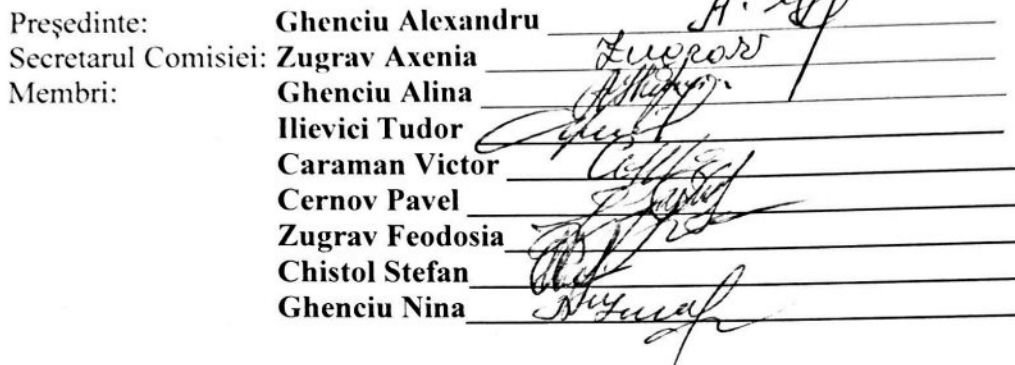 Președinte: Ghenciu Alexandru
Secretarul Comisiei: Zugrav Axenia
Membri: Ghenciu Alina
Ilievici Tudor
Caraman Victor
Cernov Pavel
Zugrav Feodosia
Chistol Stefan
Ghenciu Nina